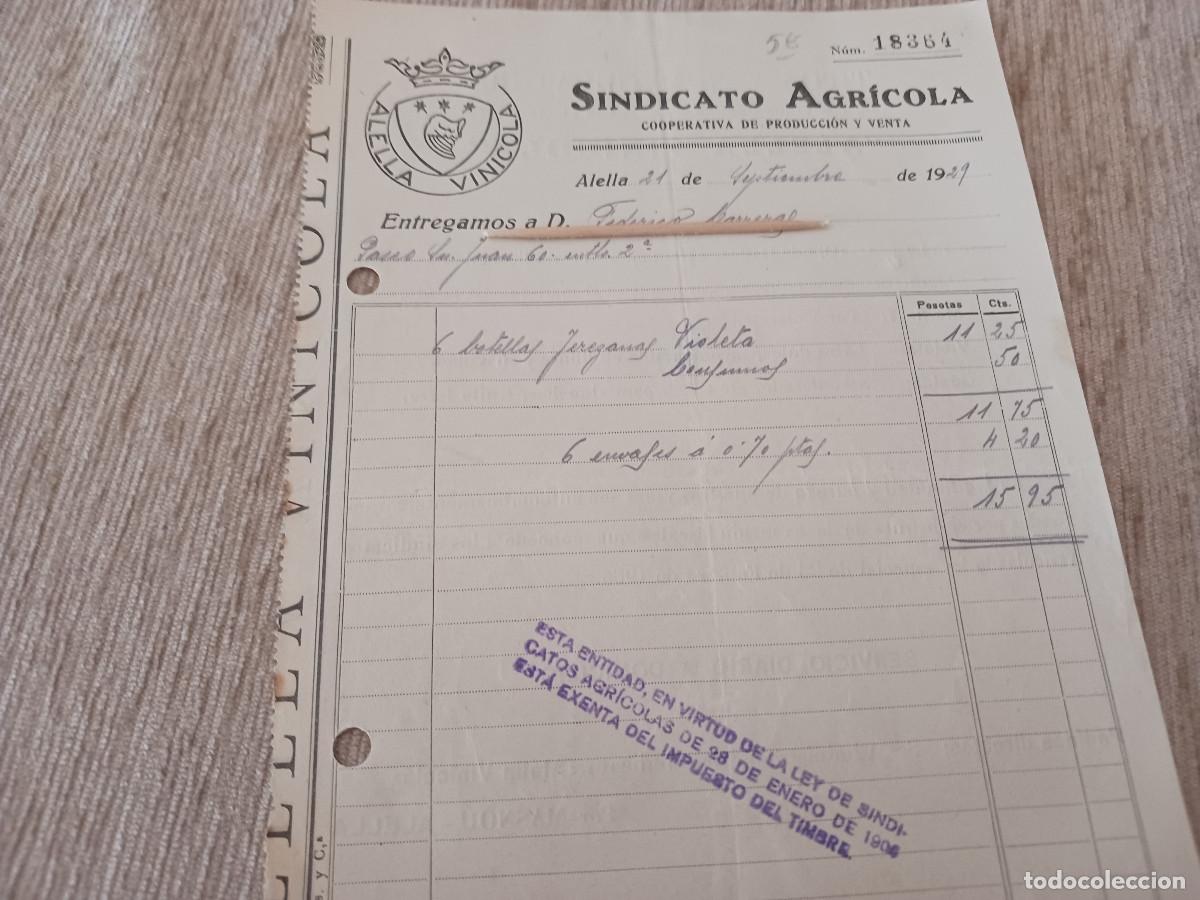 5€
Núm. 18364
ALELLA VINICOLA
SINDICATO AGRÍCOLA
COOPERATIVA DE PRODUCCIÓN Y VENTA
Alella 21 de Septiembre de 1929
Entregamos a D. Federico
Paseo Sn. Juan 60. entlo. 2ª
Pesetas Cts.
6 botellas Jerezanas Violeta 11 25
Consumos 50
11 75
6 envases á 0'70 ptas. 4 20
15 95
ESTA ENTIDAD, EN VIRTUD DE LA LEY DE SINDI-
CATOS AGRÍCOLAS DE 28 DE ENERO DE 1906
ESTÁ EXENTA DEL IMPUESTO DEL TIMBRE.
ALELLA VINICOLA
s. y C.ª
todocoleccion